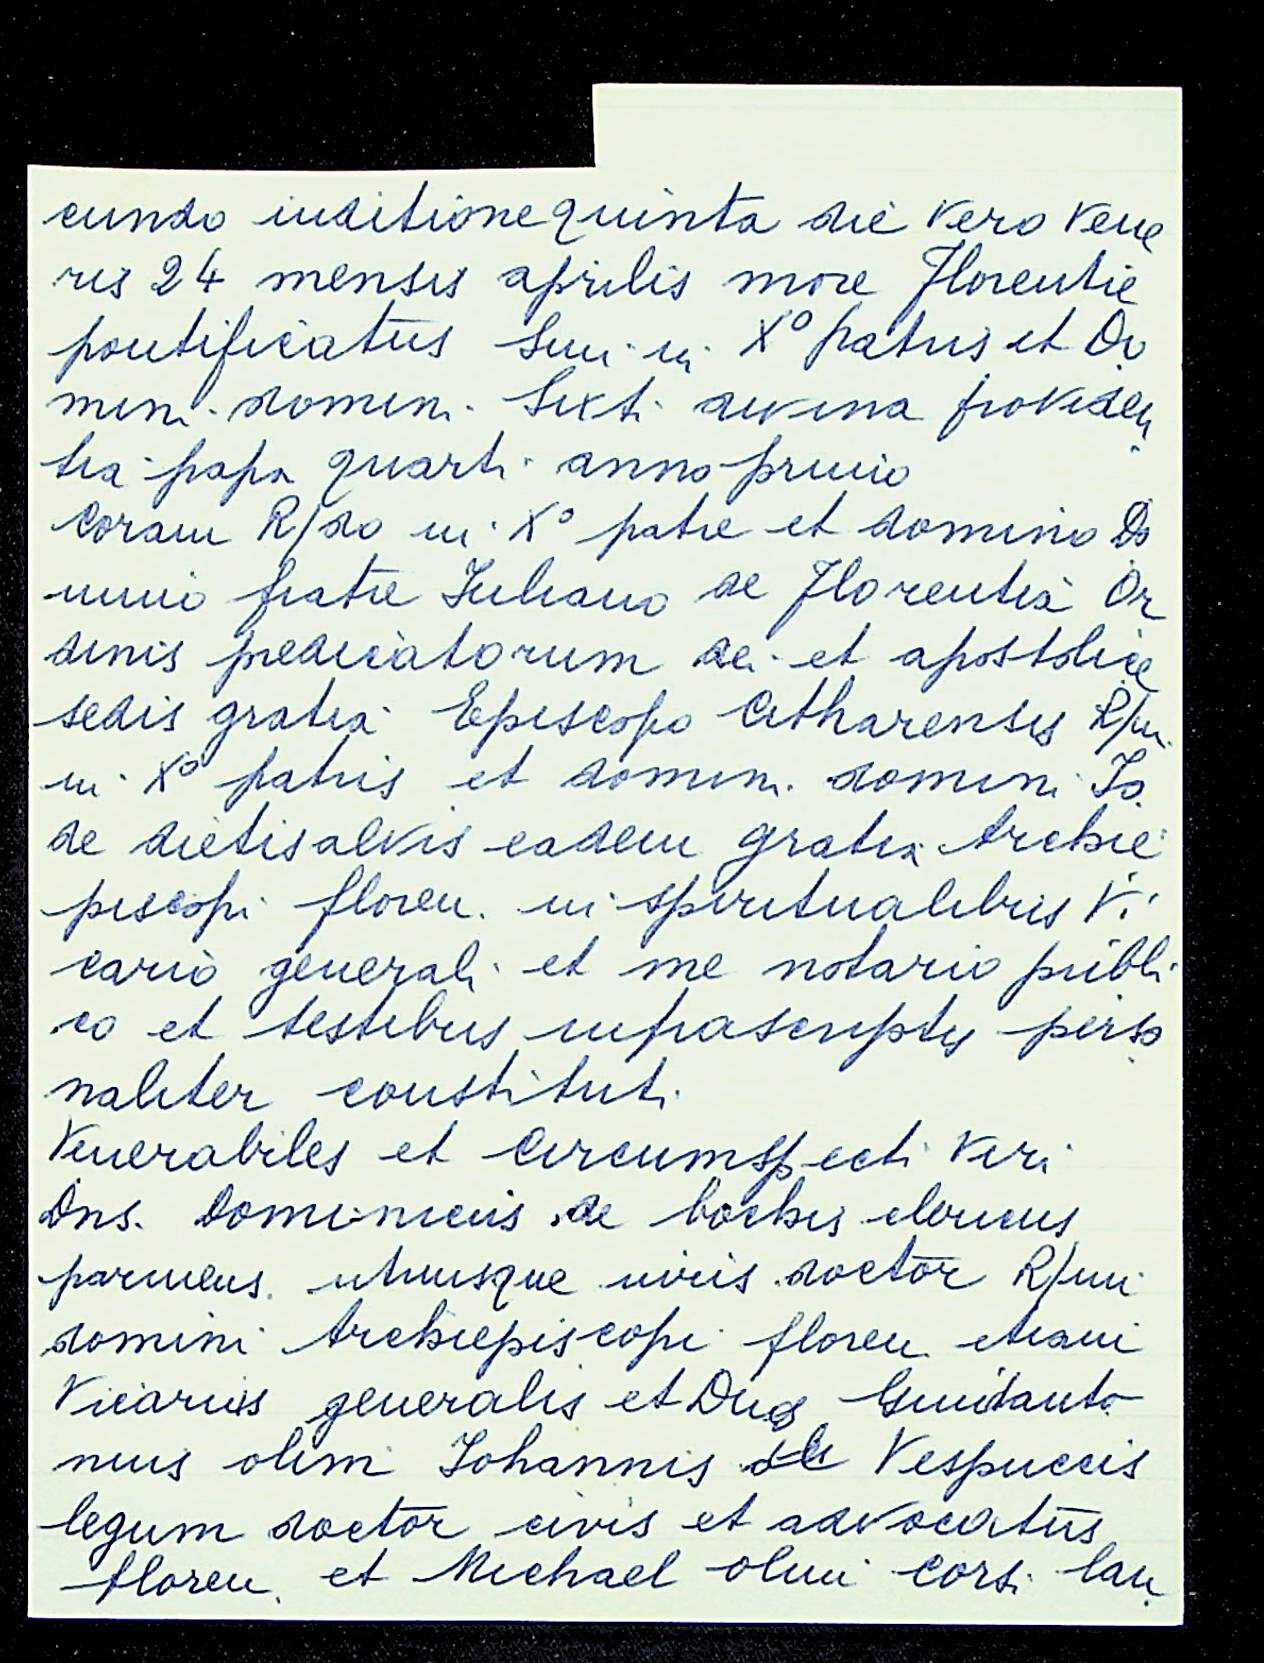 cundo inditione quinta die vero vene
ris 24 mensis aprilis more Florentie
pontificatus Smi in Xº patris et Do
mini domini Sixti divina providen
tia papa quarti anno primo
Coram R/do in Xº patre et domino Do
mino fratre Juliano de Florentia Or
dinis predicatorum dei et apostolice
sedis gratia Episcopo Citharensis R/mi
in Xº patris et domini domini Jo.
de dietisalvis eadem gratia Archie
piscopi floren. in spiritualibus Vi
cario generali et me notario publi
co et testibus infrascriptis perso
naliter constituti
Venerabiles et Circumspecti Viri
Dns. Dominicus de bochis clericus
parmens. utriusque iuris doctor R/mi
domini Archiepiscopi floren etiam
Vicarius generalis et Dns Guidanto
nius olim Johannis de Vespuccis
legum doctor civis et advocatus
floren. et Michael olim Corsi lau